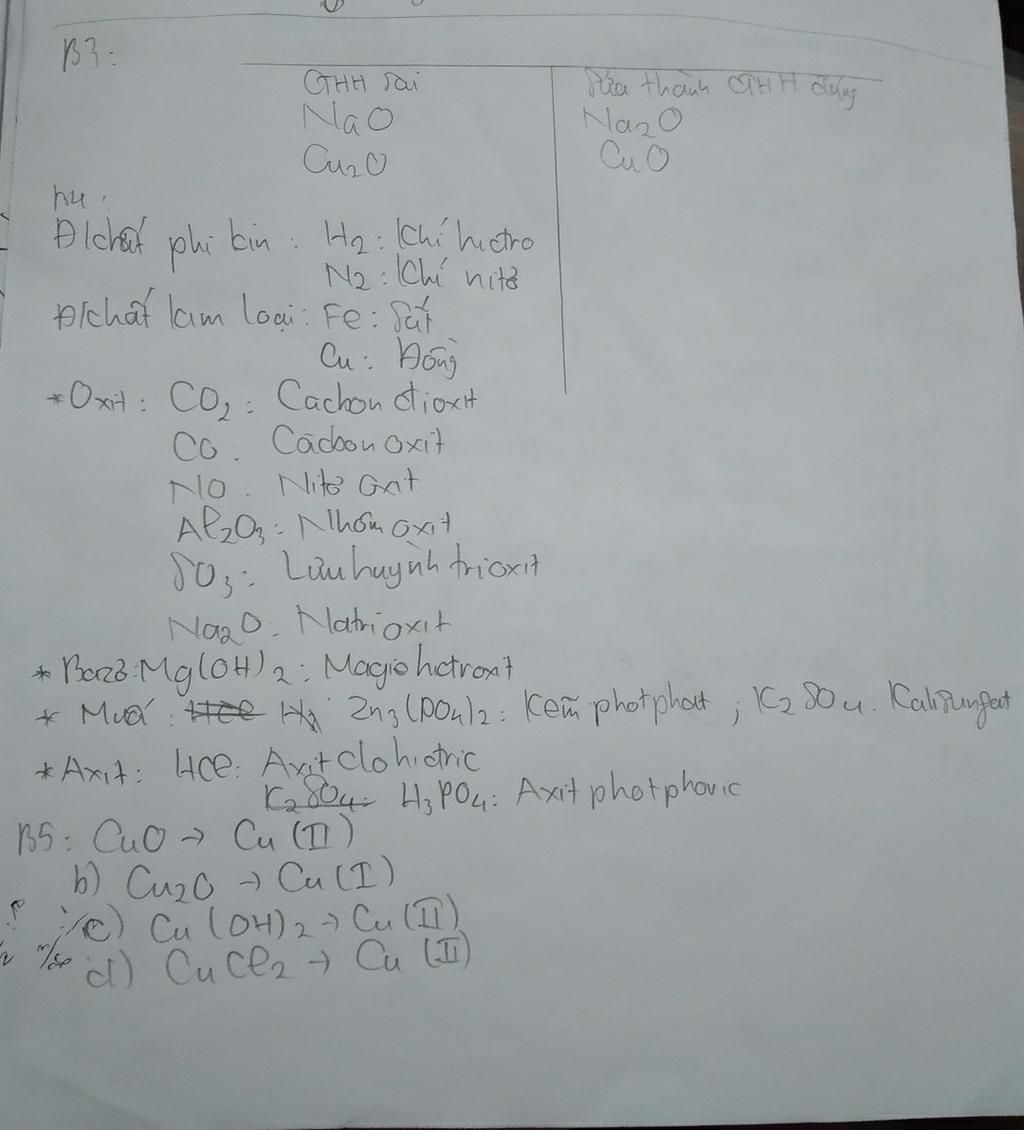 B3:
CTHH sai | Sửa thành CTHH đúng
NaO | Na2O
Cu2O | CuO
B4:
Đ/chất phi kin: H2: Khí hiđro
N2: Khí nitơ
Đ/chất kim loại: Fe: Sắt
Cu: Đồng
*Oxit: CO2: Cacbon đioxit
CO: Cacbon oxit
NO: Nitơ oxit
Al2O3: Nhôm oxit
SO3: Lưu huỳnh trioxit
Na2O: Natri oxit
* Bazơ: Mg(OH)2: Magie hiđroxit
* Muối: HCl Zn3(PO4)2: Kẽm photphat; K2SO4: Kali sunfat
*Axit: HCl: Axit clohiđric
K2SO4: H3PO4: Axit photphoric
B5: CuO → Cu (II)
b) Cu2O → Cu (I)
c) Cu(OH)2 → Cu (II)
d) CuCl2 → Cu (II)